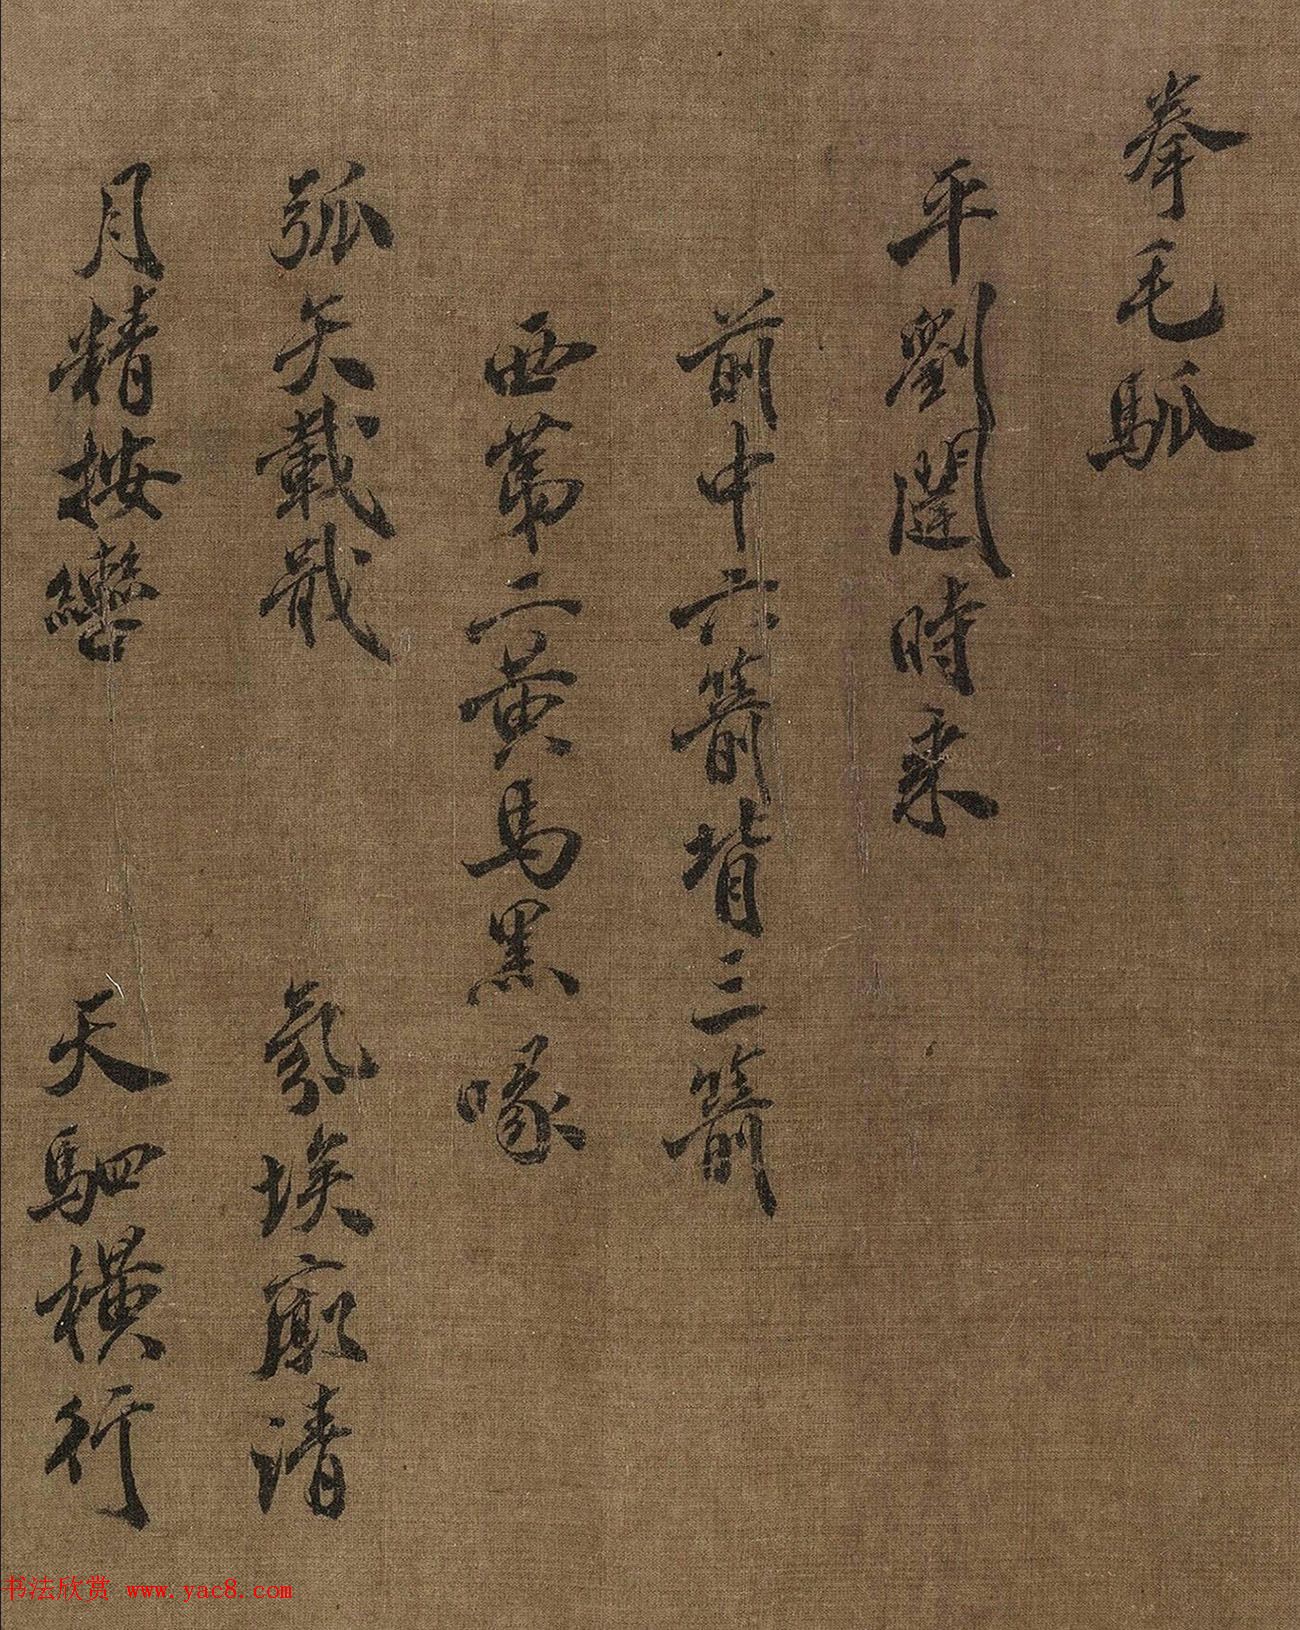 拳毛䯄
平劉闥時乘
前中六箭背三箭
西第二黃馬黑喙
月精按轡 天駟橫行
弧矢載戢 氛埃廓清
书法欣赏 www.yac8.com